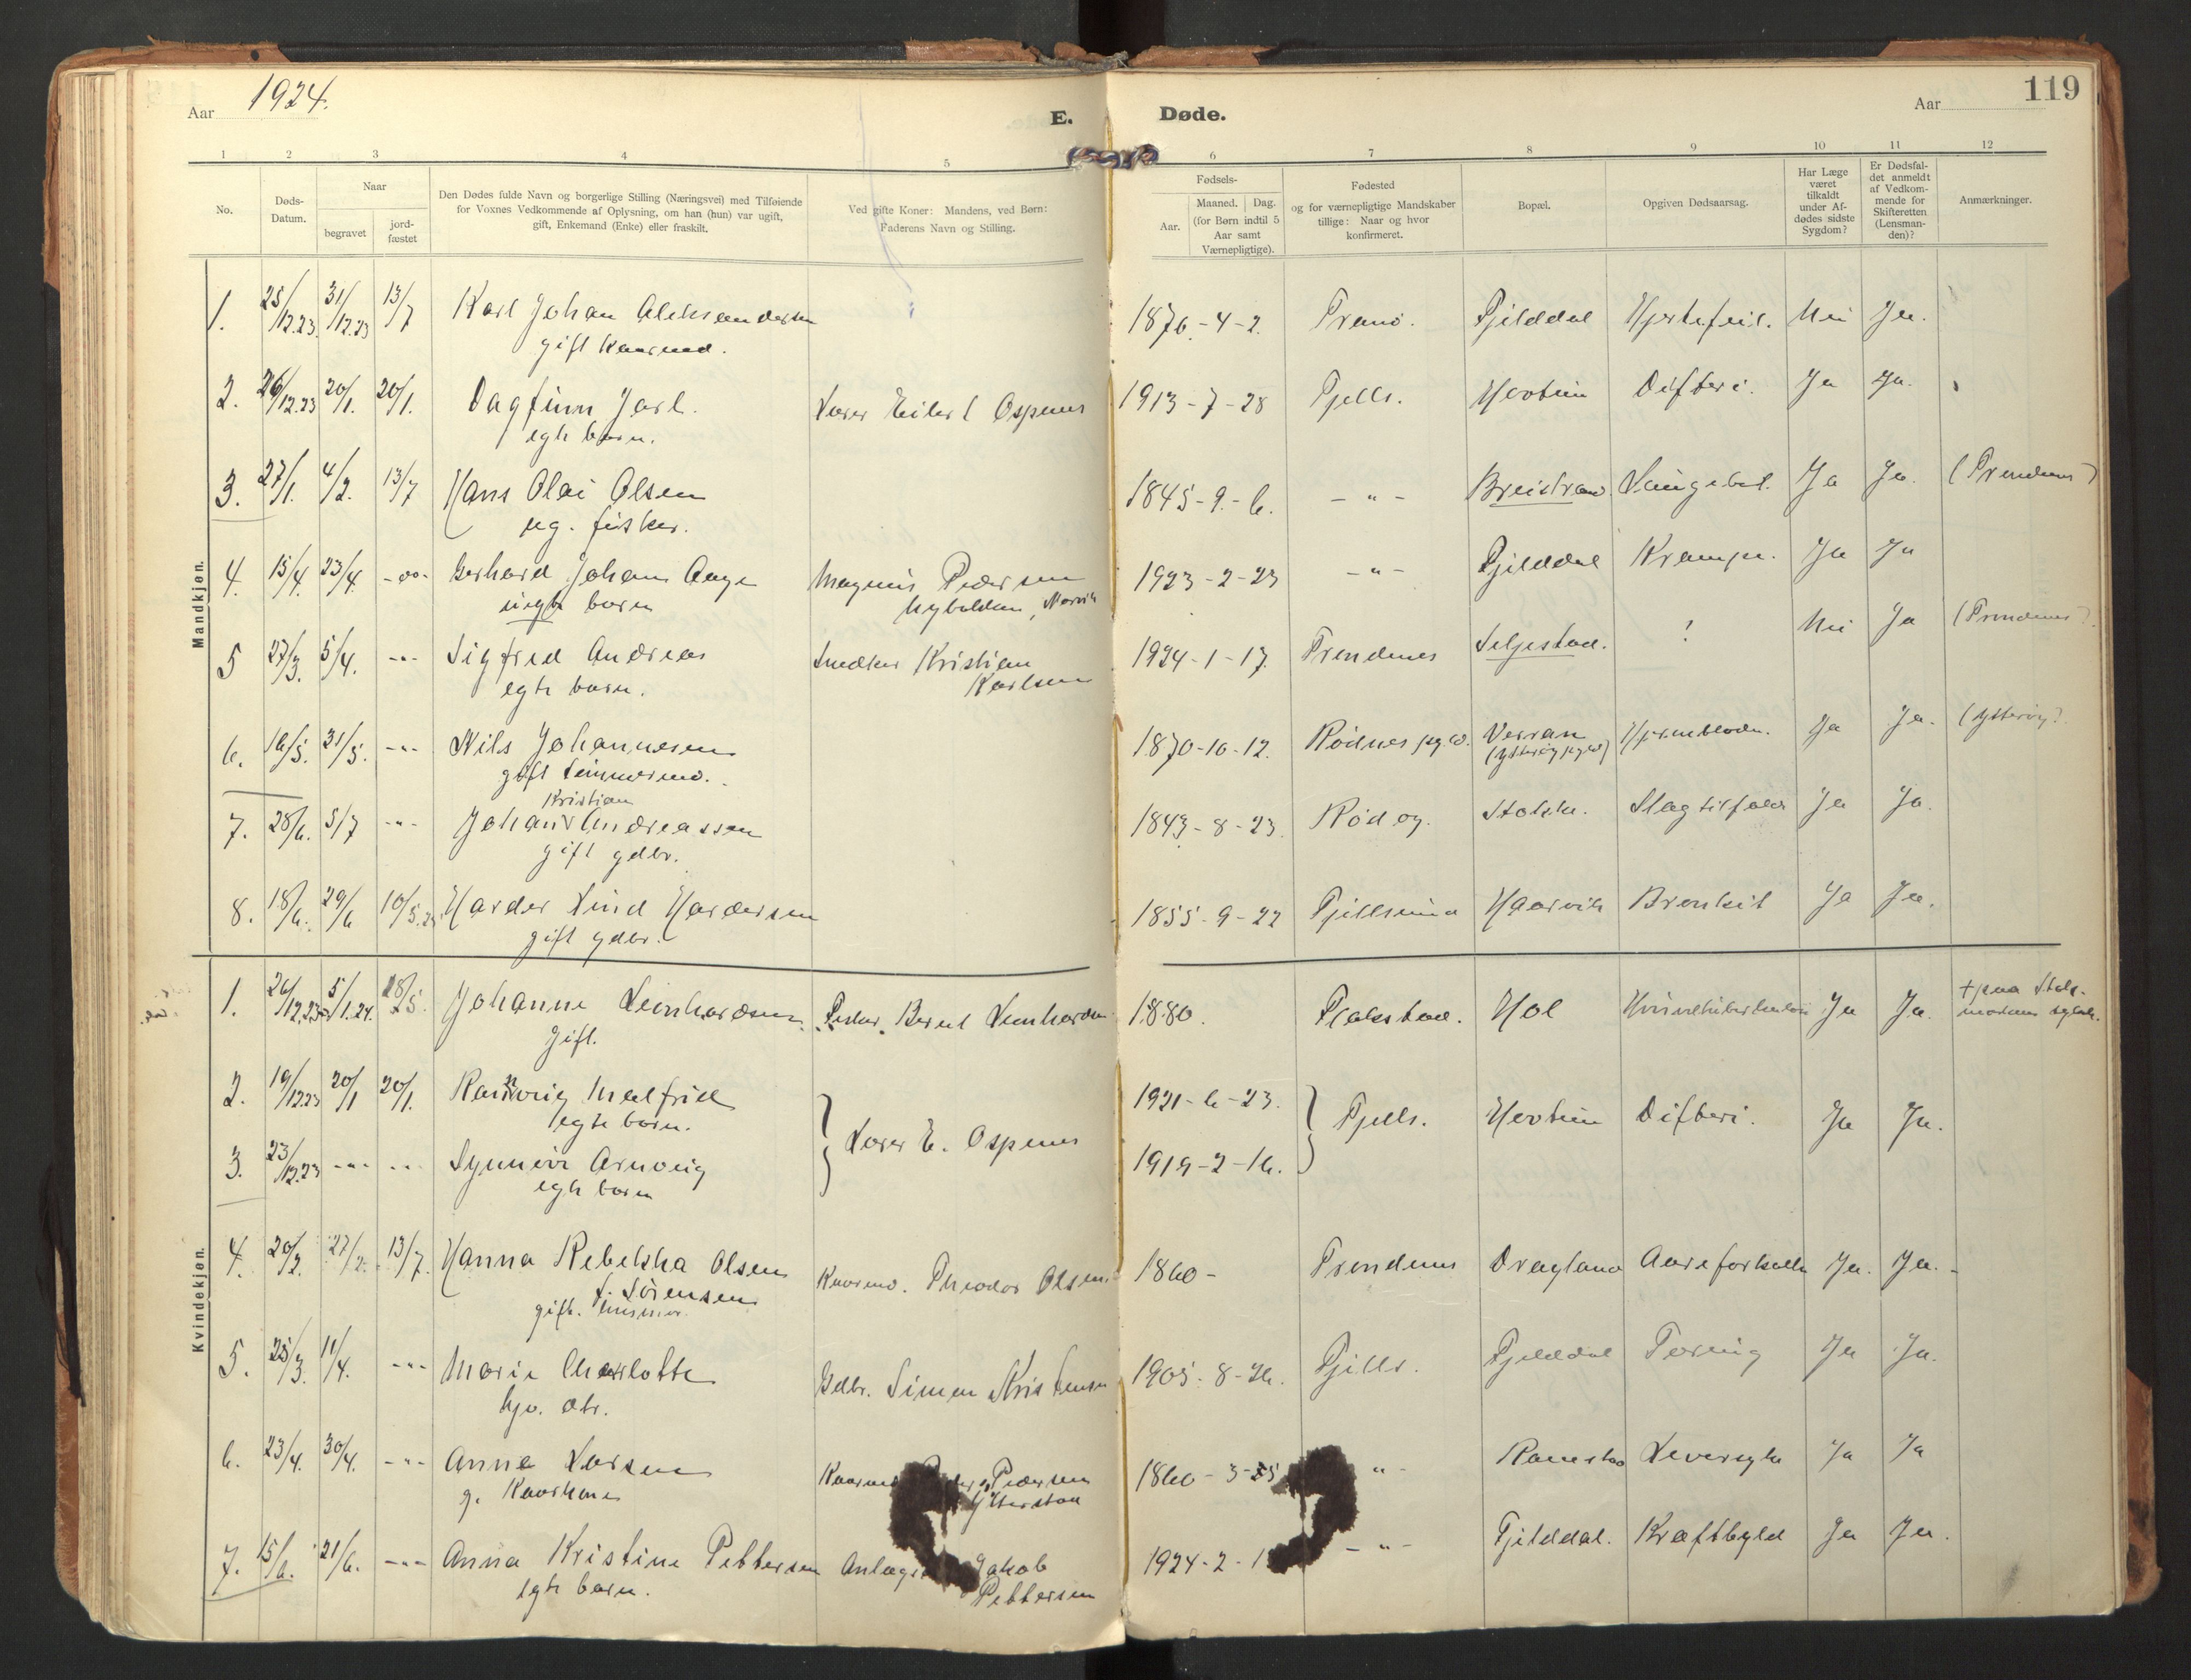 Aar 1924.
E.
Døde.
Aar
119
1 2 3 4 5 6 7 8 9 10 11 12
No.
Døds-
Datum.
Naar
begravet
jord-
fæstet
Den Dødes fulde Navn og borgerlige Stilling (Næringsvei) med Tilføiende
for Voxnes Vedkommende af Oplysning, om han (hun) var ugift,
gift, Enkemand (Enke) eller fraskilt.
Ved gifte Koner: Mandens, ved Børn:
Faderens Navn og Stilling.
Fødsels-
Aar.
Maaned. Dag.
(for Børn indtil 5
Aar samt
Værnepligtige).
Fødested
og for værnepligtige Mandskaber
tillige: Naar og hvor
konfirmeret.
Bopæl.
Opgiven Dødsaarsag.
Har Læge
været
tilkaldt
under Af-
dødes sidste
Sygdom?
Er Dødsfal-
det anmeldt
af Vedkom-
mende for
Skifteretten
(Lensman-
den)?
Anmærkninger.
Mandkjøn.
1. 25/12.23. 31/12.23 13/7 Karl Johan Aleksandersen 1876-4-2. Tranø. Fjelddal Hjertefeil. Nei Ja.
gift Kaarmd.
2. 26/12.23 20/1. 20/1. Dagfinn Jarl. Lærer Eilert Ospenes 1913-7-28 Fjells. Difteri. Ja Ja.
egte barn.
3. 27/1. 4/2. 13/7 Hans Olai Olsen 1845-9-6. -"- Breistrand Ja Ja. (Trondenes)
ug. fisker.
4. 15/4. 23/4. -"- Gerhard Johan Aage Magnus Pedersen 1923-2-23 -"- Fjelddal Krampe. Ja Ja
uegte barn
Narvik
5 27/3. 5/4. -"- Sigfred Andreas Snedker Kristian 1924-1-17. Trondenes Seljestad. ! Nei Ja (Trondenes).
egte barn. Karlsen
6. 16/5. 31/5. -"- Nils Johannesen 1870-10-12. Rødnes pg.d. Verran Hjerneblødn. Ja Ja. (Ytterøy)
gift tømmermd. (Ytterøy pg.d)
Kristian
7. 28/6. 5/7 -"- Johan Andreassen 1843-8-23. Rødøy. Stokke. Slagtilfælde Ja Ja.
gift gdbr.
8. 18/6. 29/6 10/5.25 Harder Lind Hardersen 1855-9-22 Fjellsund Haarvik Bronkit Ja Ja.
gift gdbr.
Kvindekjøn.
1. 26/12.23 5/1.24. 18/5. Johanne Leonhardsen Fisker Bernt Leonhardsen 1880. Flakstad. Hol Ja Ja. + paa Stok-
gift. marknes sykeh.
2. 19/12.23 20/1 20/1. Rannveig Malfrid 1921-6-23.
egte barn.
Lærer E. Ospenes Fjells. Difteri. Ja Ja.
3. 23/12.23 -"- -"- Synnøve Arnveig 1919-2-16.
egte barn
4. 20/2. 27/2. 13/7. Hanna Rebekka Olsen Kaarmd. Theodor Olsen 1860- Trondenes Dragland Aareforkalk. Ja. Ja.-
f. Sørensen
gift. husmor.
5. 25/3. 11/4. -"- Marie Charlotte Gdbr. Simon Kristensen 1905-8-26. Fjells. Fjelddal Tæring Ja Ja.
hjv. dtr.
6. 23/4. 30/4. -"- Anne Larsen Kaarmd Peder Pedersen 1860-3-25 -"- Ramstad Leversyke Ja Ja
g. Kaarkone Ytterstad
7. 15/6. 21/6. -"- Anna Kristine Pettersen Anlægs Jakob 1924-2-1 -"- Fjelddal. Kraftbyld Ja Ja.
egte barn. Pettersen